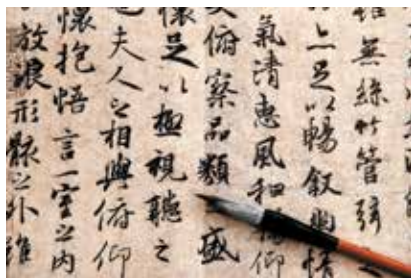 雖無絲竹管弦之
亦足以暢叙幽情
氣清惠風和暢仰
俯察品類盛
懷足以極視聽之
夫人之相與俯仰
懷抱悟言一室之内
放浪形骸之外雖